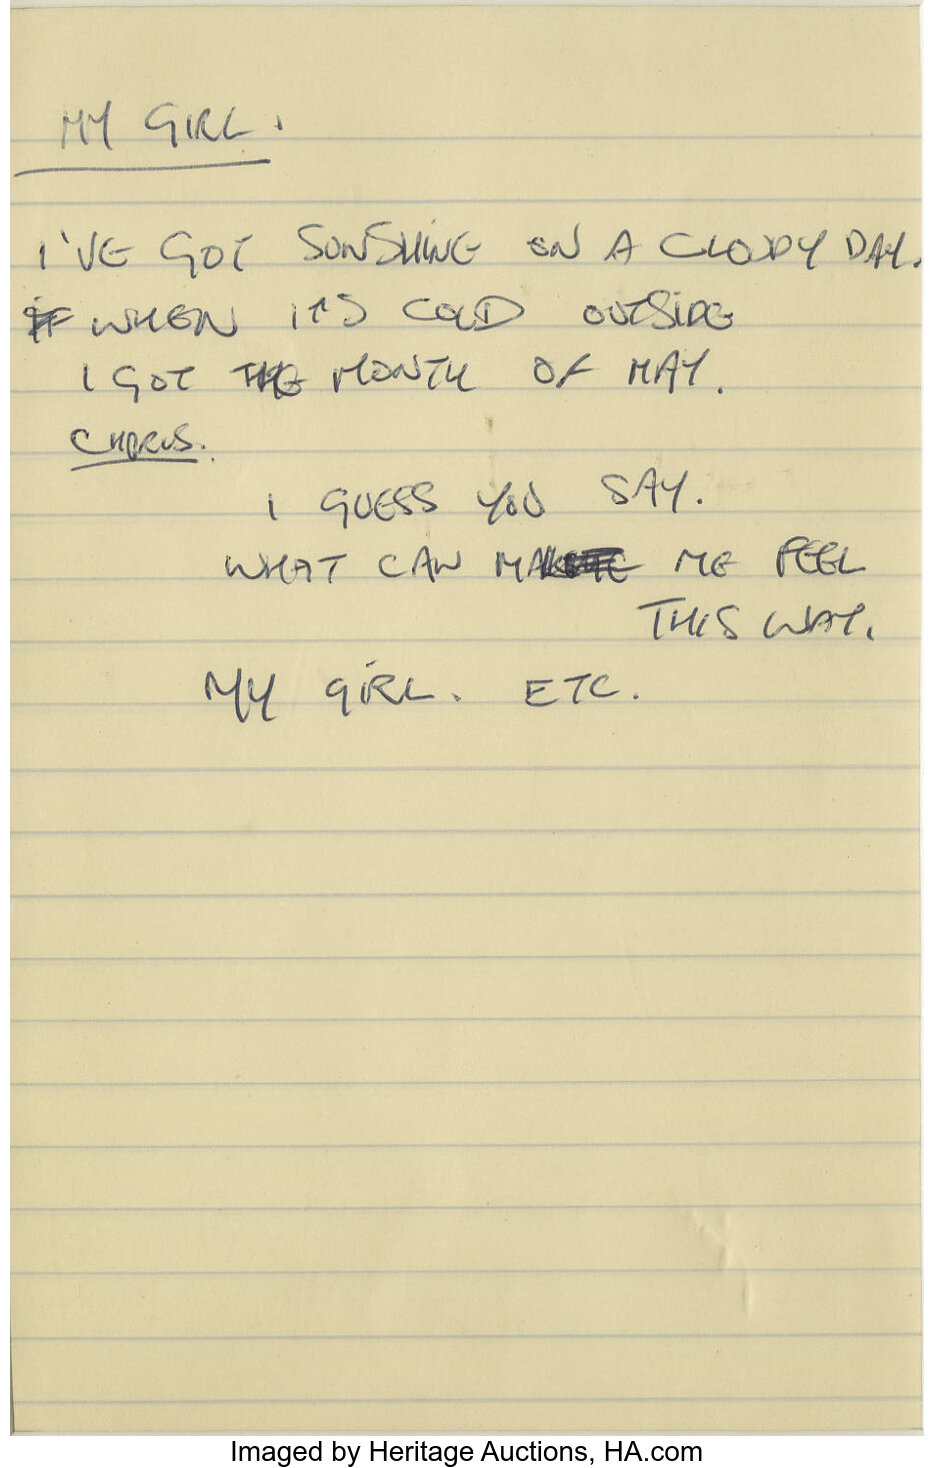 MY GIRL.
I'VE GOT SUNSHINE ON A CLOUDY DAY.
WHEN ITS COLD OUTSIDE
I GOT THE MONTH OF MAY.
CHORUS.
I GUESS YOU SAY.
WHAT CAN MAKE ME FEEL
THIS WAY.
MY GIRL. ETC.
Imaged by Heritage Auctions, HA.com